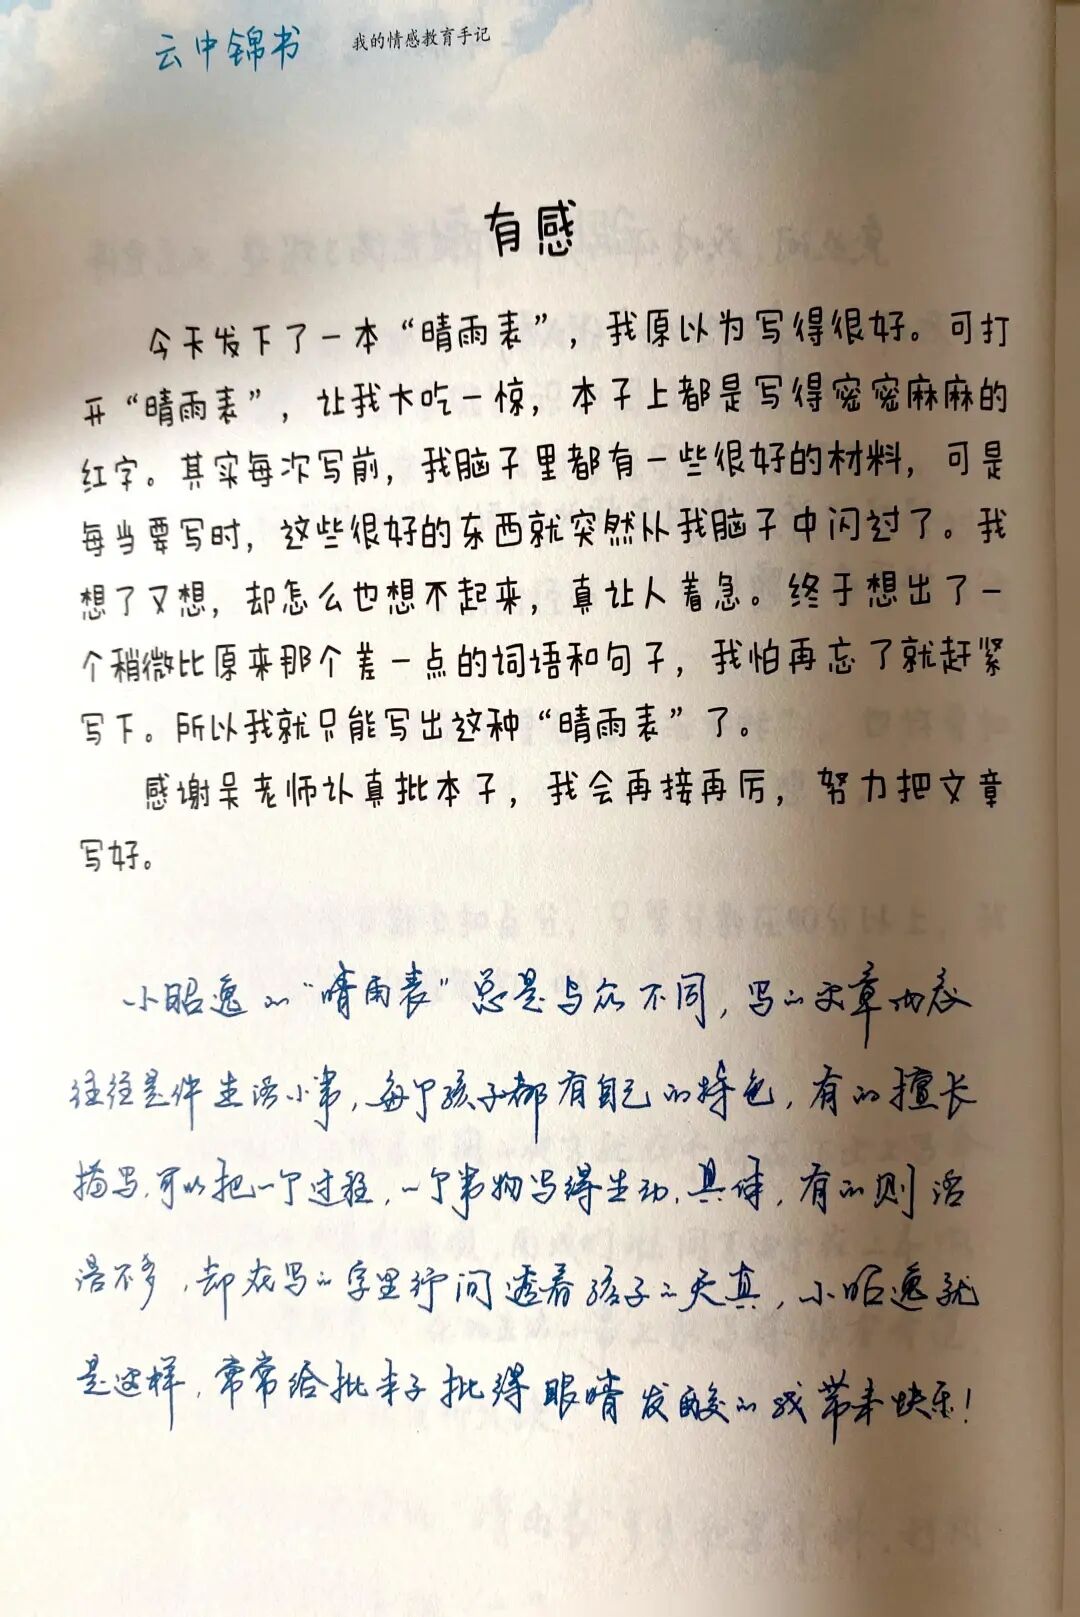 云中锦书 我的情感教育手记
有感
今天发下了一本“晴雨表”，我原以为写得很好。可打
开“晴雨表”，让我大吃一惊，本子上都是写得密密麻麻的
红字。其实每次写前，我脑子里都有一些很好的材料，可是
每当要写时，这些很好的东西就突然从我脑子中闪过了。我
想了又想，却怎么也想不起来，真让人着急。终于想出了一
个稍微比原来那个差一点的词语和句子，我怕再忘了就赶紧
写下。所以我就只能写出这种“晴雨表”了。
感谢吴老师认真批本子，我会再接再厉，努力把文章
写好。
小昭逸的“晴雨表”总是与众不同，写的文章内容
往往是件生活小事，每个孩子都有自己的特色，有的擅长
描写，可以把一个过程，一个事物写得生动、具体，有的则话
语不多，却在写的字里行间透着孩子的天真，小昭逸就
是这样，常常给批本子批得眼睛发酸的我带来快乐！